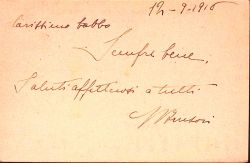 12-9-1916
Carissimo babbo
Sempre bene.
Saluti affettuosi a tutti